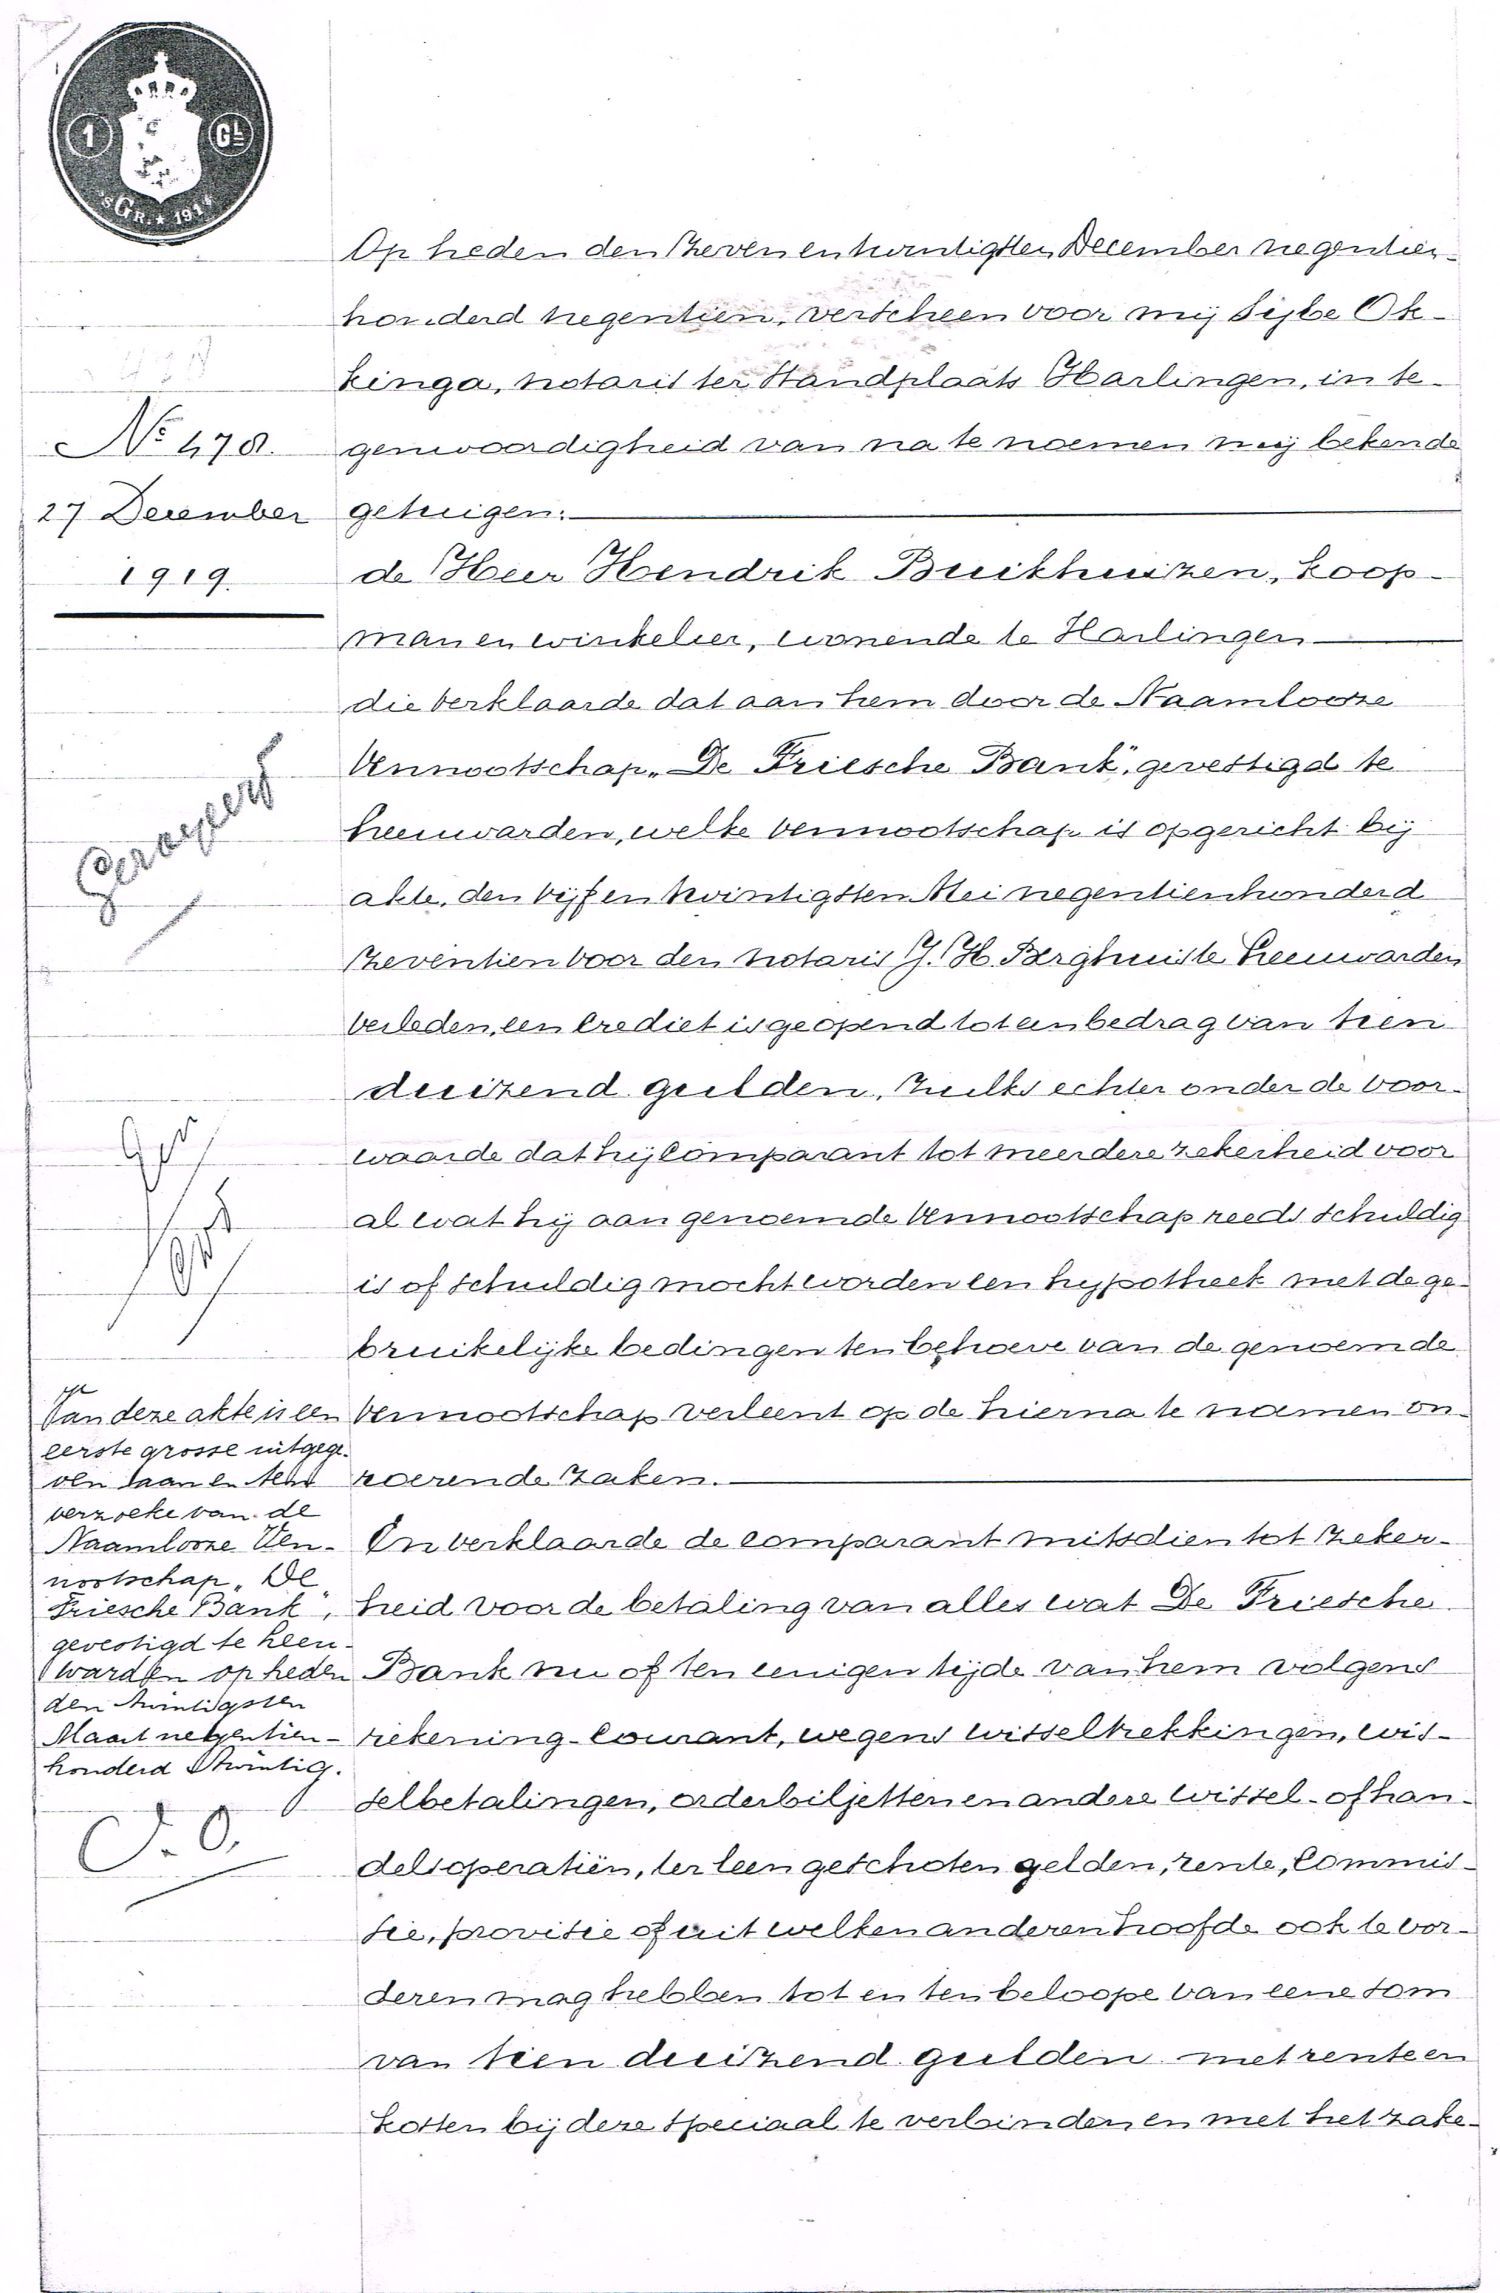 1 GL
'sGR. ★ 1914
Op heden den zeven en twintigsten December negentien-
honderd negentien, verscheen voor mij Sijbe Ok-
kinga, notaris ter Standplaats Harlingen, in te-
genwoordigheid van na te noemen mij bekende
getuigen:
de Heer Hendrik Buikhuizen, koop-
man en winkelier, wonende te Harlingen
die verklaarde dat aan hem door de Naamlooze
Vennootschap „De Friesche Bank", gevestigd te
Leeuwarden, welke vennootschap is opgericht bij
akte, den vijf en twintigsten Mei negentienhonderd
zeventien voor den notaris J. H. Berghuis te Leeuwarden
verleden, een crediet is geopend tot een bedrag van tien
duizend gulden, zulks echter onder de voor-
waarde dat hij comparant tot meerdere zekerheid voor
al wat hij aan genoemde Vennootschap reeds schuldig
is of schuldig mocht worden een hypotheek met de ge-
bruikelijke bedingen ten behoeve van de genoemde
Vennootschap verleent op de hierna te noemen on-
roerende zaken.
En verklaarde de comparant mitsdien tot zeker-
heid voor de betaling van alles wat De Friesche
Bank nu of ten eenigen tijde van hem volgens
rekening-courant, wegens wisseltrekkingen, wis-
selbetalingen, orderbiljetten en andere wissel- of han-
delsoperatiën, ter leen geschoten gelden, rente, commis-
sie, provisie of uit welken anderen hoofde ook te vor-
deren mag hebben tot en ten beloope van eene som
van tien duizend gulden met rente en
kosten bij deze speciaal te verbinden en met het zake-
No 478.
27 December
1919.
Geroyeerd
Van deze akte is een
eerste grosse uitgege-
ven aan en ten
verzoeke van de
Naamlooze Ven-
nootschap „De
Friesche Bank",
gevestigd te Leeu-
warden op heden
den twintigsten
Maart negentien-
honderd twintig.
S. O.